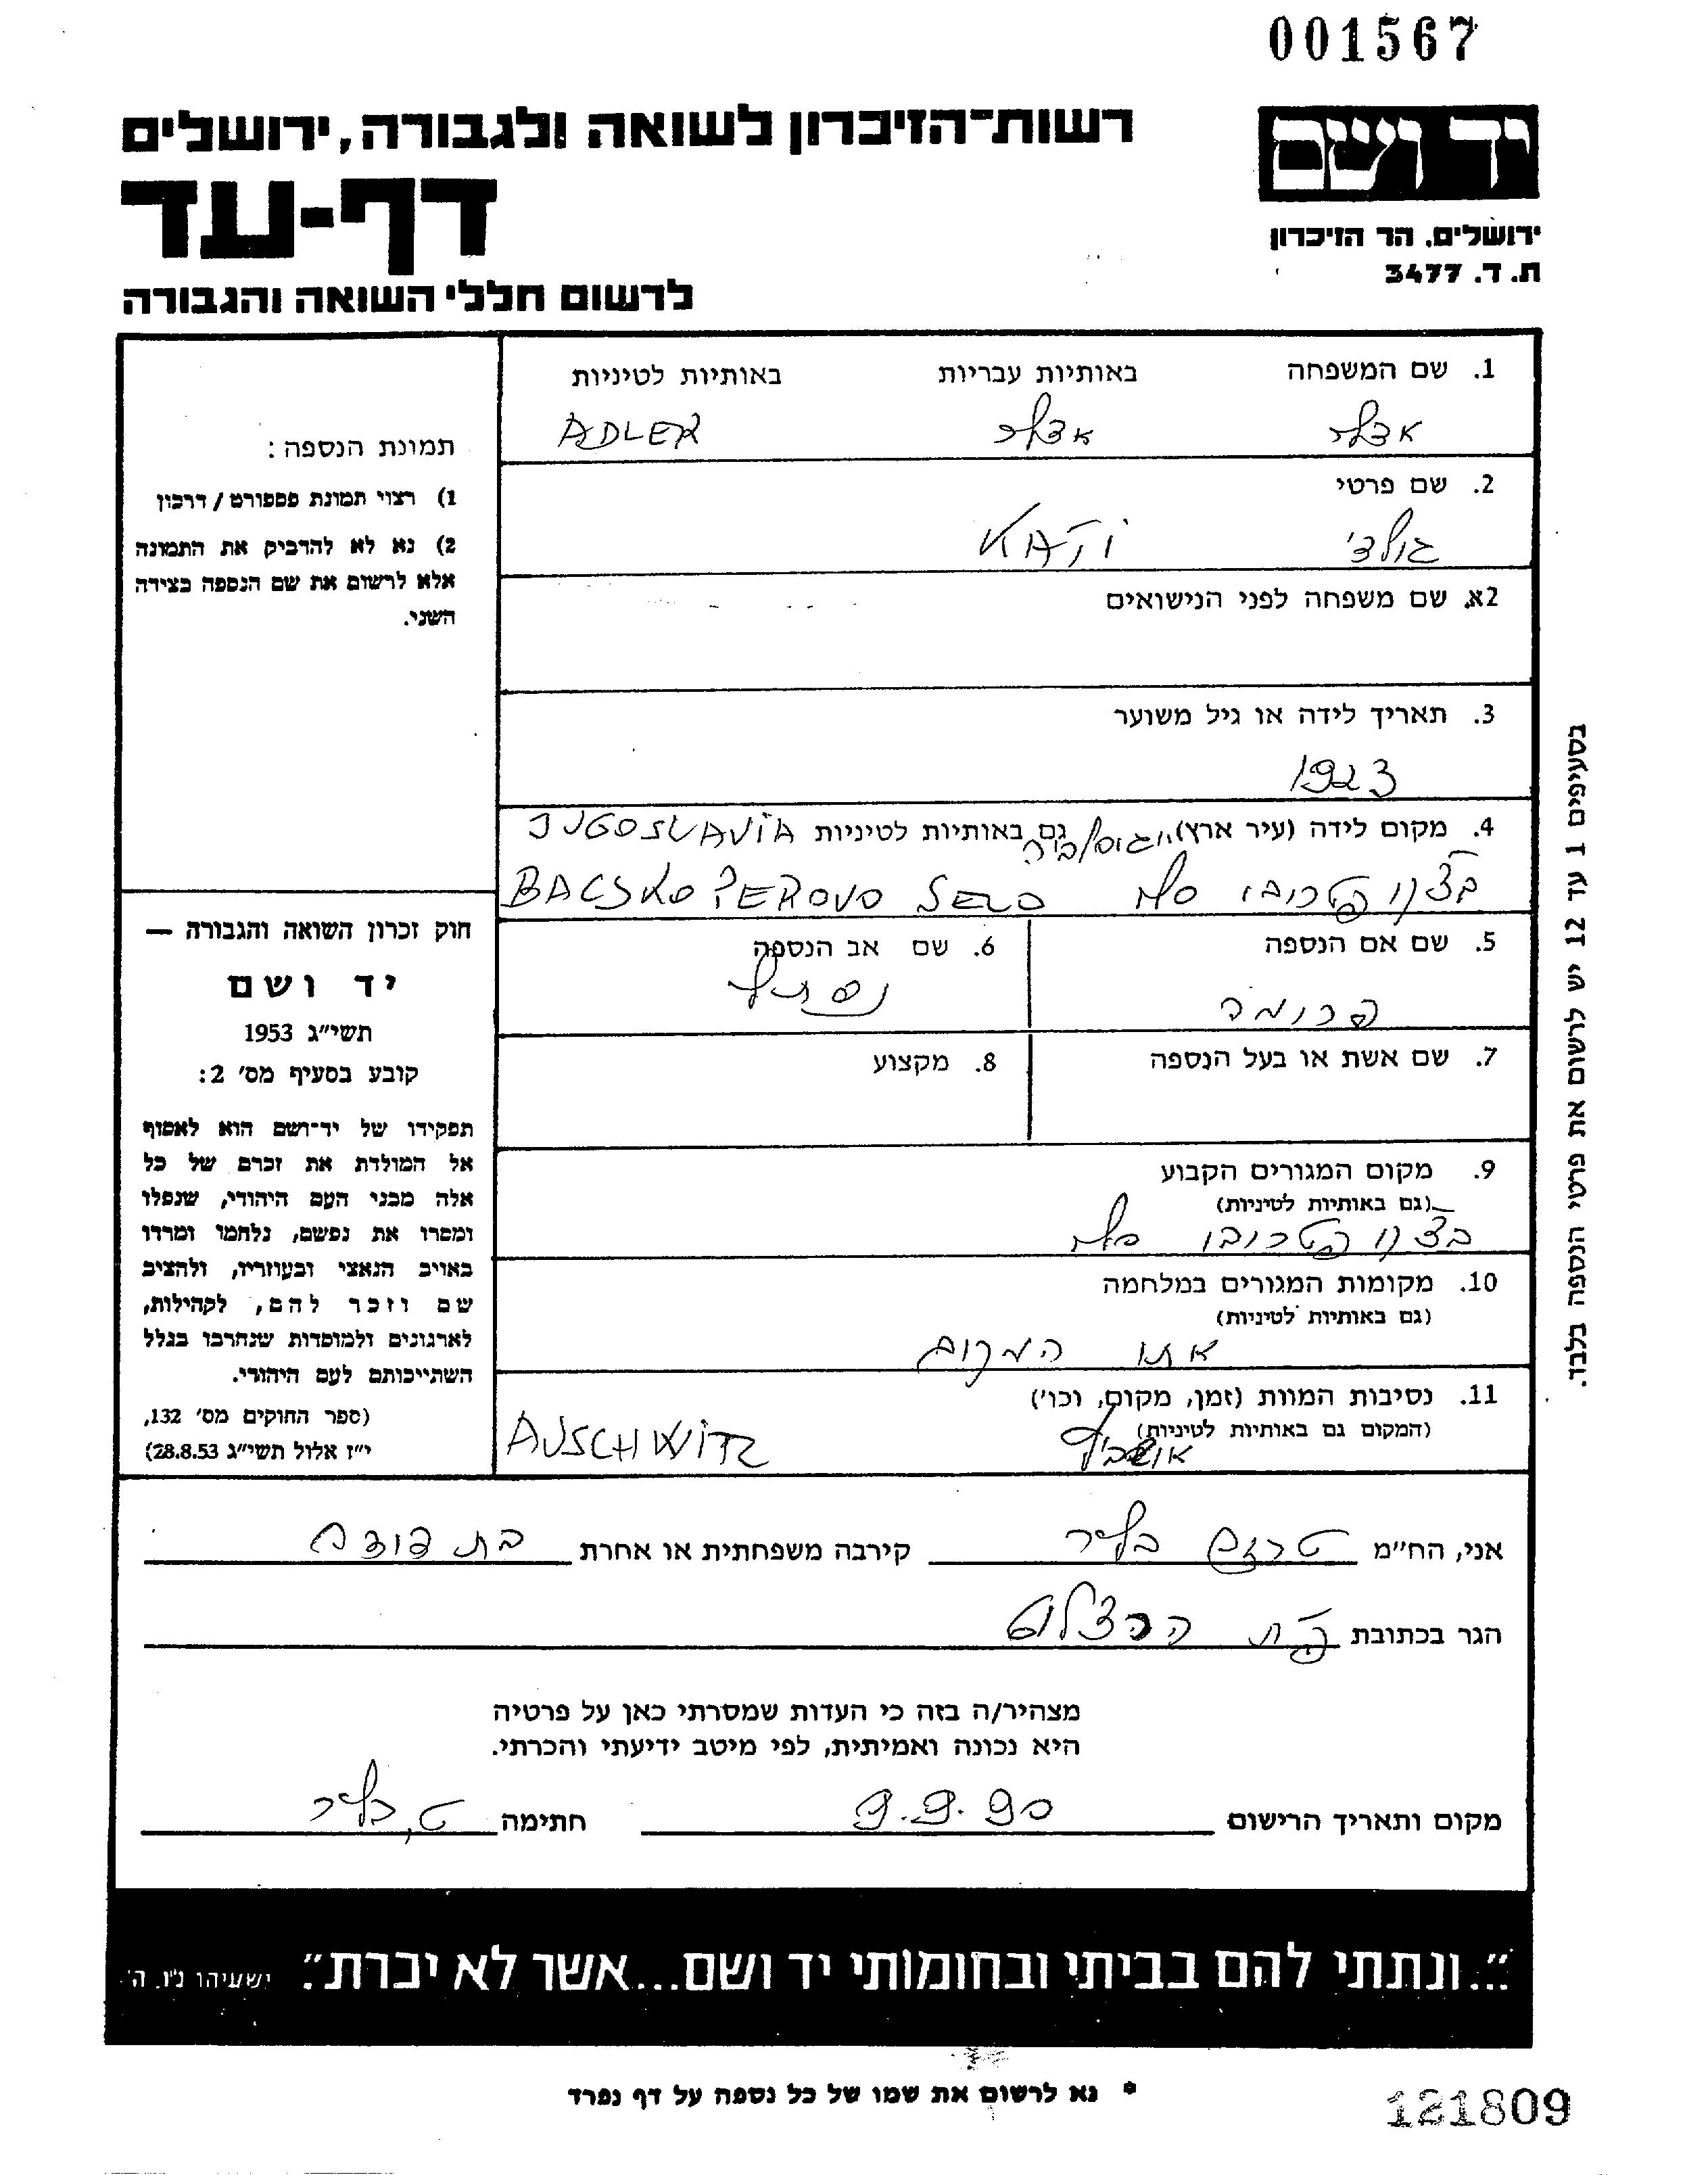 001567
רשות־הזיכרון לשואה ולגבורה, ירושלים
יד ושם
דף-עד
ירושלים. הר הזיכרון
ת. ד. 3477
לרשום חללי השואה והגבורה
1. שם המשפחה באותיות עבריות באותיות לטיניות
אדלר אדלר ADLER
2. שם פרטי
KATI
2א. שם משפחה לפני הנישואים
3. תאריך לידה או גיל משוער
1923
4. מקום לידה (עיר ארץ) גם באותיות לטיניות JUGOSLAVIA
יוגוסלביה
סלו BACSKO PEROVO SELO
5. שם אם הנספה 6. שם אב הנספה
פרומה נפתלי
7. שם אשת או בעל הנספה 8. מקצוע
9. מקום המגורים הקבוע
(גם באותיות לטיניות)
סלו
10. מקומות המגורים במלחמה
(גם באותיות לטיניות)
אתו המקום
11. נסיבות המוות (זמן, מקום, וכו')
(המקום גם באותיות לטיניות)
AUSCHWITZ
תמונת הנספה:
1) רצוי תמונת פספורט / דרכון
2) נא לא להדביק את התמונה
אלא לרשום את שם הנספה בצידה
השני.
חוק זכרון השואה והגבורה —
יד ושם
תשי״ג 1953
קובע בסעיף מס' 2:
תפקידו של יד־ושם הוא לאסוף
אל המולדת את זכרם של כל
אלה מבני העם היהודי, שנפלו
ומסרו את נפשם, נלחמו ומרדו
באויב הנאצי ובעוזריו, ולהציב
שם וזכר להם, לקהילות,
לארגונים ולמוסדות שנחרבו בגלל
השתייכותם לעם היהודי.
(ספר החוקים מס' 132,
י״ז אלול תשי״ג 28.8.53)
בסעיפים 1 עד 12 יש לרשום את פרטי הנספה בלבד.
אני, הח״מ קירבה משפחתית או אחרת בת דודה
הגר בכתובת
מצהיר/ה בזה כי העדות שמסרתי כאן על פרטיה
היא נכונה ואמיתית, לפי מיטב ידיעתי והכרתי.
מקום ותאריך הרישום 9.9.90 חתימה
"...ונתתי להם בביתי ובחומותי יד ושם...אשר לא יכרת". ישעיהו נ״ו. ה'
* נא לרשום את שמו של כל נספה על דף נפרד
121809